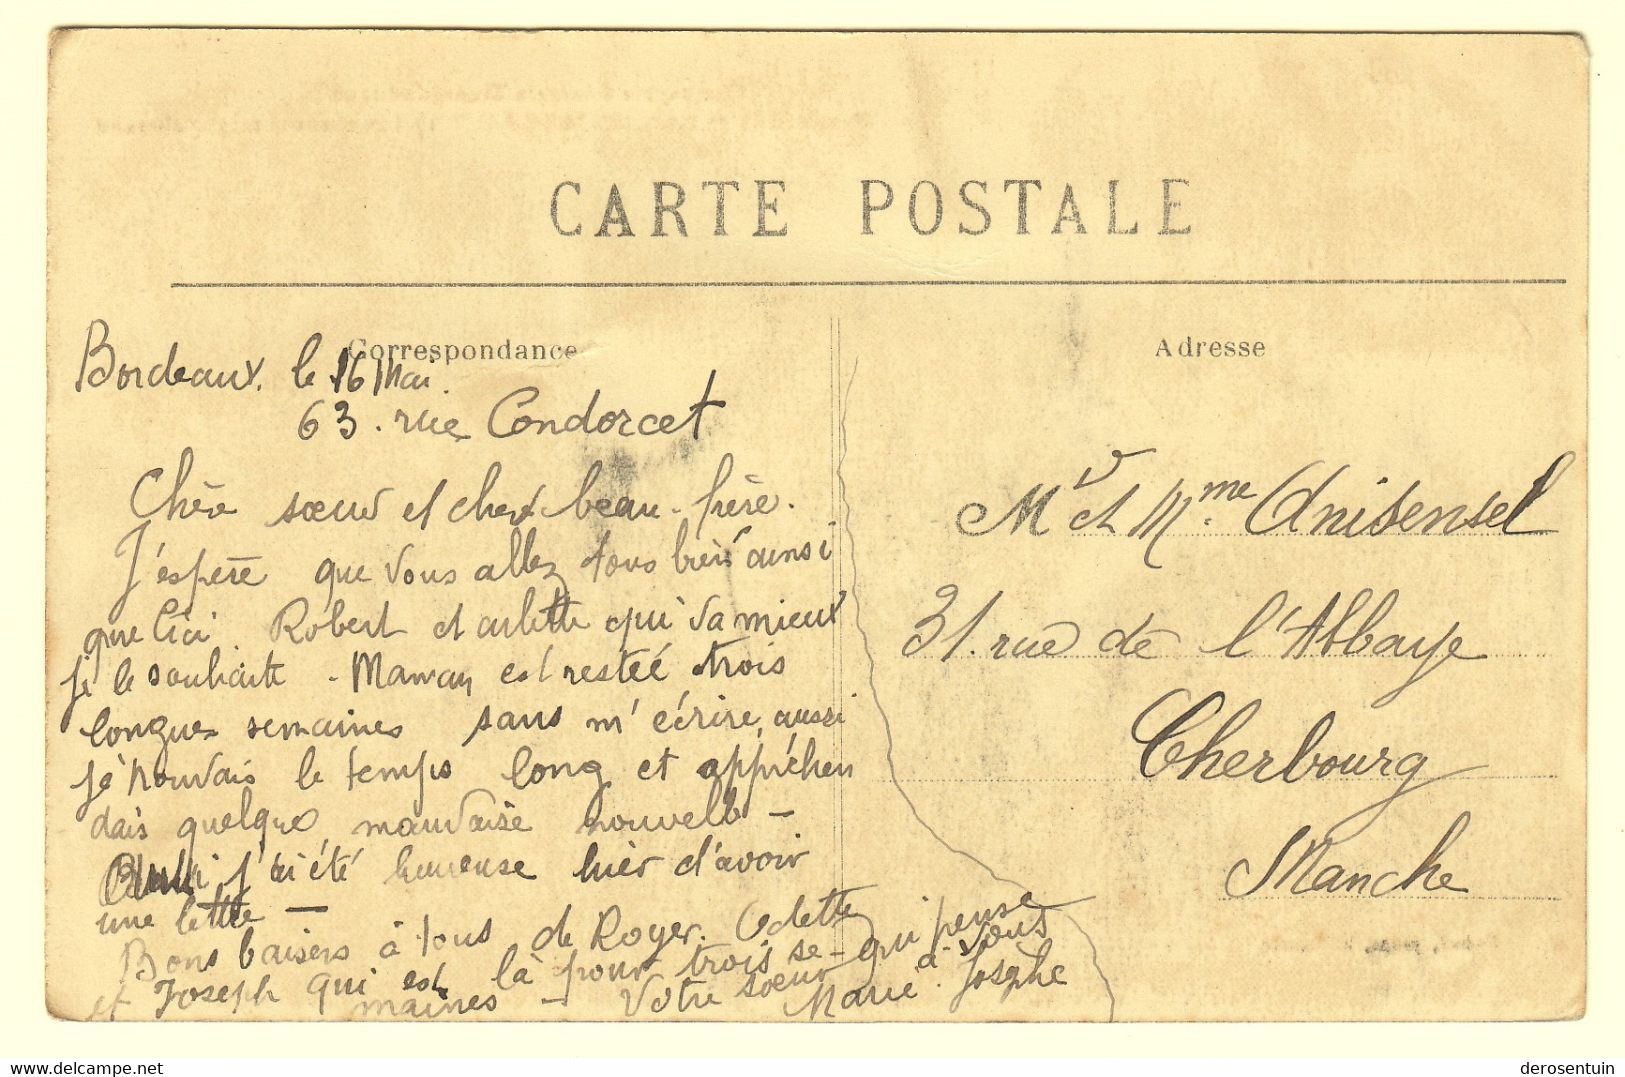 CARTE POSTALE
Correspondance
Bordeaux. le 16 Mai.
63. rue Condorcet
Chère sœur et cher beau-frère.
J'espère que vous allez tous bien ainsi
que Robert et arlette qui va mieux
je le souhaite - Maman est restée trois
longues semaines sans m'écrire, aussi
je trouvais le temps long et appréhen
dais quelque mauvaise nouvelle -
j'ai été heureuse hier d'avoir
une lettre -
Bons baisers à tous de Royer. Odette
et Joseph qui est là pour trois se-
maines - Votre sœur qui pense
à vous
Marie-Josèphe
Adresse
Mr et Mme Anisensel
31. rue de l'Abbaye
Cherbourg
Manche
delcampe.net
derosentuin